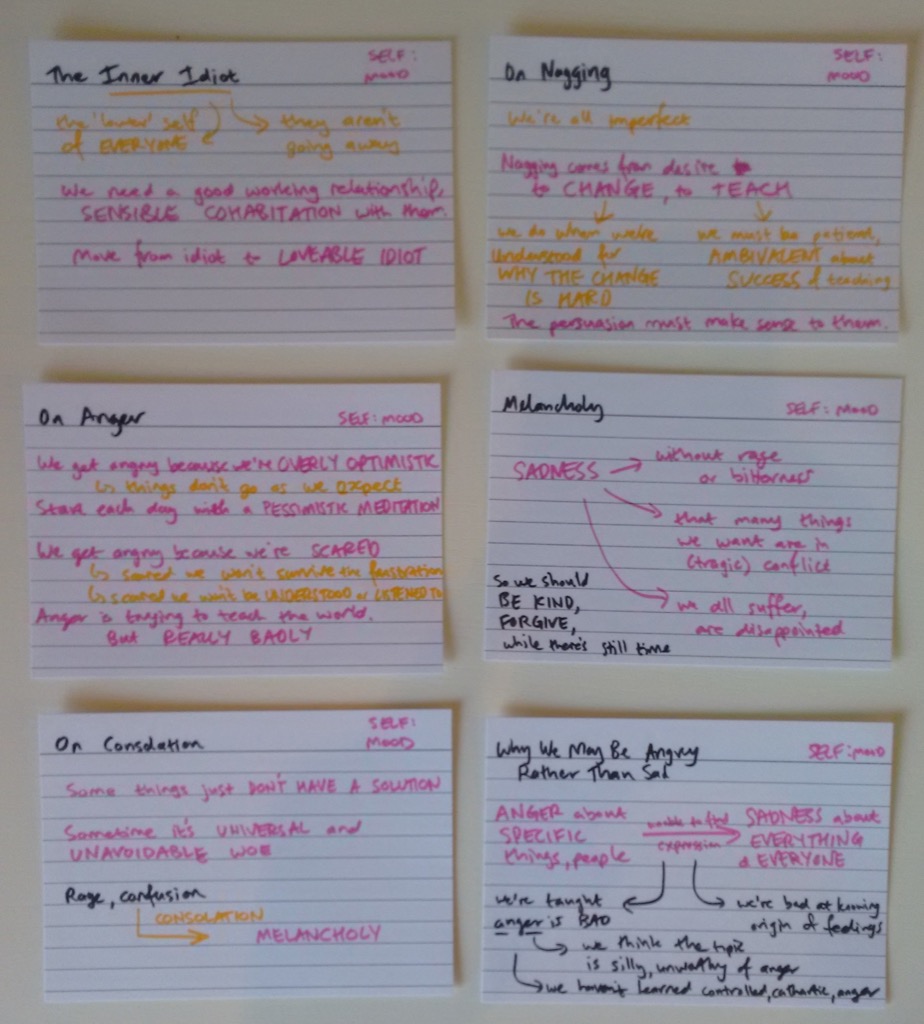 The Inner Idiot
SELF:
MOOD
the 'lower' self
of EVERYONE
they aren't
going away
We need a good working relationship,
SENSIBLE COHABITATION with them.
Move from idiot to LOVEABLE IDIOT
On Nagging
SELF:
MOOD
We're all imperfect
Nagging comes from desire
to CHANGE, to TEACH
we do when we're
understood for
WHY THE CHANGE
IS HARD
we must be patient,
AMBIVALENT about
SUCCESS of teaching
The persuasion must make sense to them.
On Anger
SELF: MOOD
We get angry because we're OVERLY OPTIMISTIC
things don't go as we expect
Start each day with a PESSIMISTIC MEDITATION
We get angry because we're SCARED
scared we won't survive the frustration
scared we won't be UNDERSTOOD or LISTENED TO
Anger is trying to teach the world.
But REALLY BADLY
Melancholy
SELF: MOOD
SADNESS
without rage
or bitterness
that many things
we want are in
(tragic) conflict
we all suffer,
are disappointed
So we should
BE KIND,
FORGIVE,
while there's still time
On Consolation
SELF:
MOOD
Some things just DON'T HAVE A SOLUTION
Sometime it's UNIVERSAL and
UNAVOIDABLE WOE
Rage, confusion
CONSOLATION
MELANCHOLY
Why We May Be Angry
Rather Than Sad
SELF: MOOD
ANGER about
SPECIFIC
things, people
unable to find
expression
SADNESS about
EVERYTHING
& EVERYONE
we're taught
anger is BAD
we're bad at knowing
origin of feelings
we think the topic
is silly, unworthy of anger
we haven't learned controlled, cathartic, anger